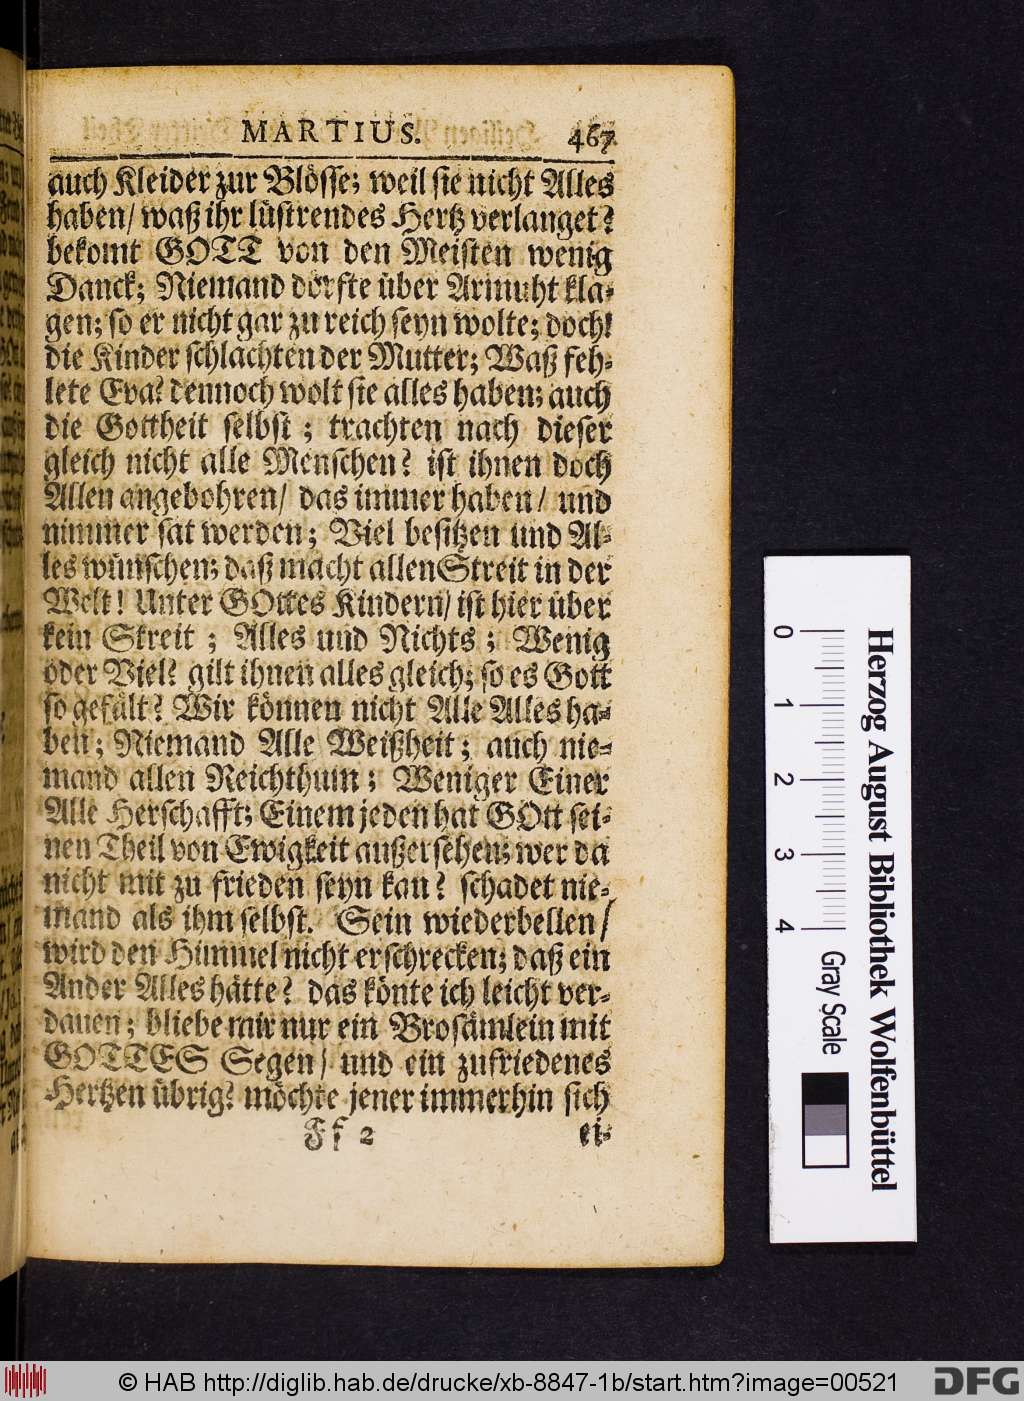 MARTIUS. 467
auch Kleider zur Blösse; weil sie nicht Alles
haben/ waß ihr lüstrendes Hertz verlanget?
bekomt GOTT von den Meisten wenig
Danck; Niemand dörfte über Armuht kla-
gen; so er nicht gar zu reich seyn wolte; doch!
die Kinder schlachten der Mutter; Waß feh-
lete Eva? dennoch wolt sie alles haben; auch
die Gottheit selbst; trachten nach dieser
gleich nicht alle Menschen? ist ihnen doch
Allen angebohren/ das immer haben/ und
nimmer sat werden; Viel besitzen und Al-
les wünschen; daß macht allen Streit in der
Welt! Unter GOttes Kindern/ ist hier über
kein Streit; Alles und Nichts; Wenig
oder Viel? gilt ihnen alles gleich; so es Gott
so gefält? Wir können nicht Alle Alles ha-
ben; Niemand Alle Weißheit; auch nie-
mand allen Reichthum; Weniger Einer
Alle Herschafft; Einem jeden hat GOtt sei-
nen Theil von Ewigkeit außersehen; wer da
nicht mit zu frieden seyn kan? schadet nie-
mand als ihm selbst. Sein wiederbellen/
wird den Himmel nicht erschrecken; daß ein
Ander Alles hätte? das könte ich leicht ver-
dauen; bliebe mir nur ein Brosämlein mit
GOTTES Segen/ und ein zufriedenes
Hertzen übrig? möchte jener immerhin sich
Ff 2 ei-
0 1 2 3 4
Gray Scale
Herzog August Bibliothek Wolfenbüttel
© HAB http://diglib.hab.de/drucke/xb-8847-1b/start.htm?image=00521
DFG